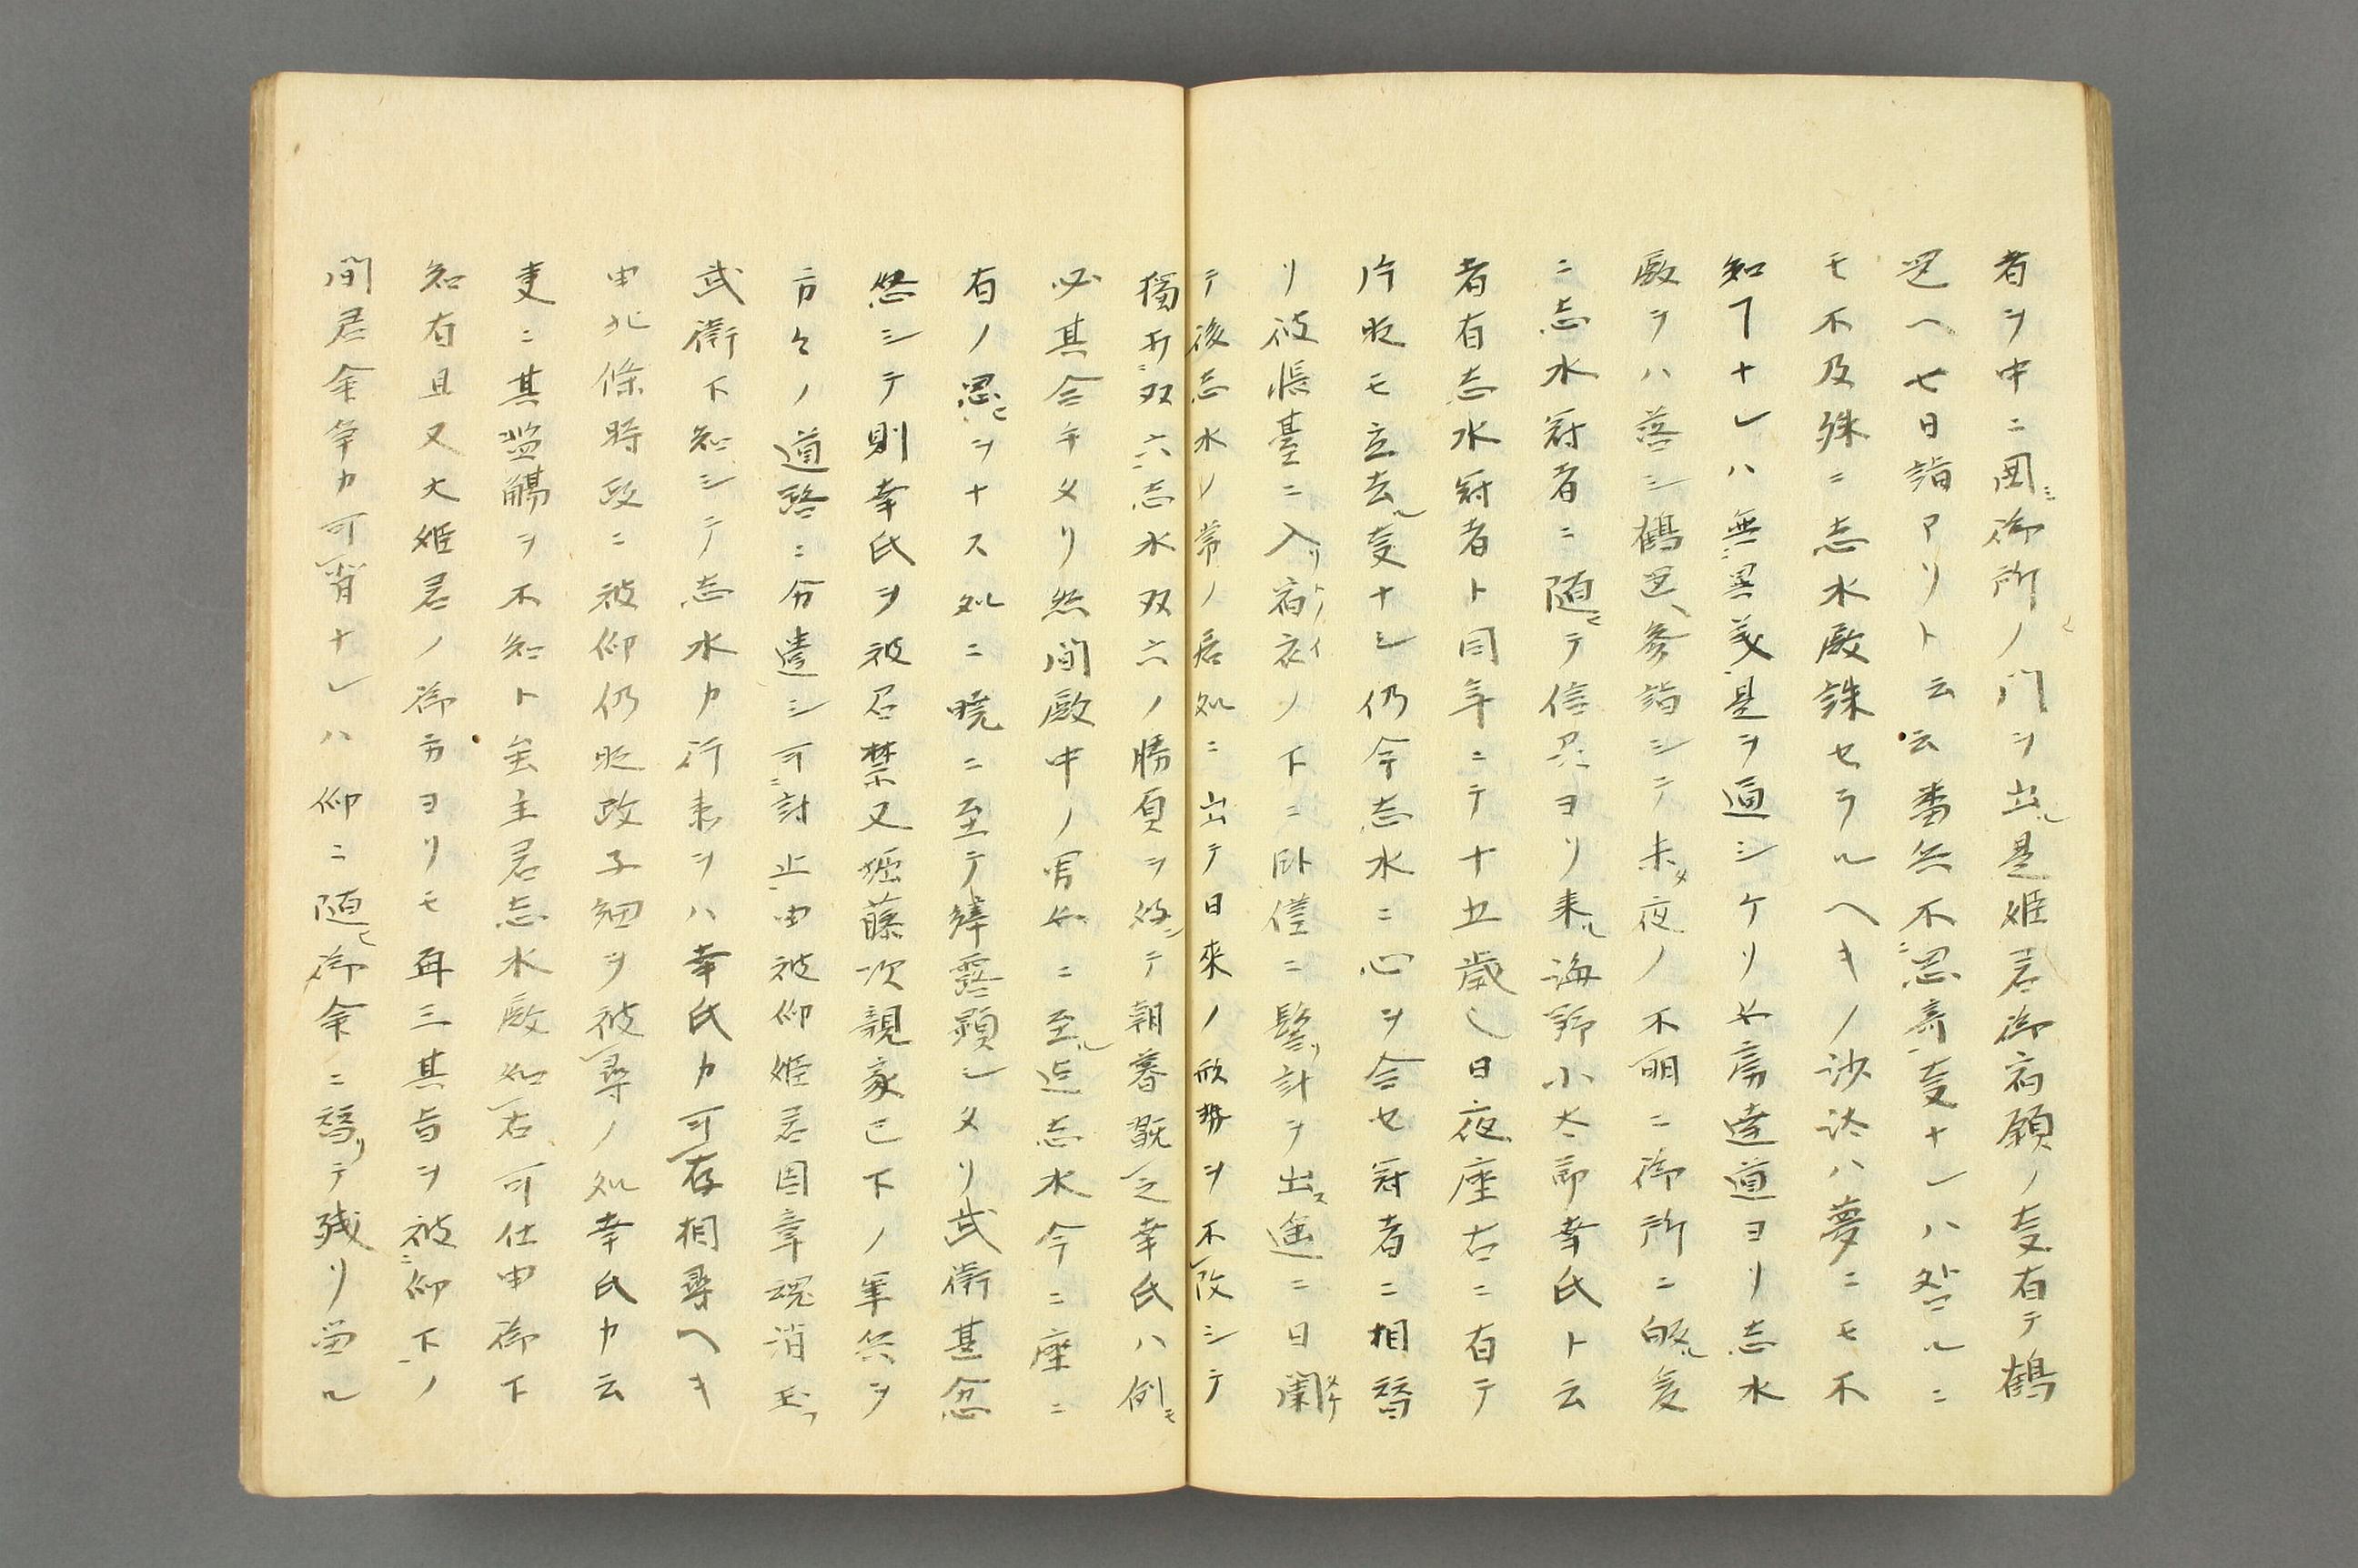 者ヲ中ニ囲ミ御所ノ門ヲ出ル是姫君御宿願ノ㕝有テ鶴
岡ヘ七日詣アリト云云番兵不忍寄㕝ナレハ咎ルニ
モ不及殊ニ志水殿誅セラルヘキノ沙汰ハ夢ニモ不
知ヿナレハ無異義是ヲ通シケリ女房達道ヨリ志水
殿ヲハ落シ鶴岡ヘ参詣シテ未タ夜ノ不明ニ御所ニ皈ル爰
ニ志水冠者ニ随テ信州ヨリ来ル海野小太郎幸氏ト云
者有志水冠者ト同年ニテ十五歳也日夜座右ニ有テ
片時モ立去ル㕝ナシ仍今志水ニ心ヲ合セ冠者ニ相替
リ彼帳臺ニ入リ宿衣ノ下ニ臥僅ニ髻計ヲ出ス遥ニ日闌ケ
テ後志水ノ常ノ居処ニ出テ日来ノ形勢ヲ不改シテ
獨打双六志水双六ノ勝負ヲ好テ朝暮翫之幸氏ハ例モ
必其合手タリ然間殿中ノ男女ニ至ル迄志水今ニ座ニ
有ノ思ヒヲナス処ニ暁ニ至テ縡露顕シタリ武衛甚忿
怒シテ則幸氏ヲ被召禁又堀藤次親家已下ノ軍兵ヲ
方々ノ道路ニ分遣シ可討止由被仰姫君周章魂消玉フ
武衛下知シテ志水カ行末ヲハ幸氏カ可存相尋ヘキ
由北條時政ニ被仰仍時政子細ヲ被尋ノ処幸氏カ云
更ニ其濫觴ヲ不知ト全主君志水殿如右可仕由御下
知有且又大姫君ノ御方ヨリモ再三其旨ヲ被仰下ノ
間君命争カ可背ナレハ仰ニ随ヒ御命ニ替リテ残リ留ル